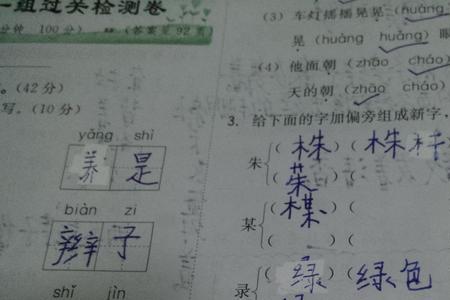 一组过关检测卷
分钟 100分) (答案见92页
。(42分)
写。(10分)
yǎng shì
养 是
biàn zi
辫 子
shǐ jìn
(3) 车灯摇摇晃晃 (huǎng
晃 (huàng huǎng) 眼
(4) 他面朝 (zhāo cháo)
天的朝 (zhāo cháo)
3. 给下面的字加偏旁组成新字,
朱 (株) (株杆
(茱
某 (楳) (
( ) (
录 (绿) (绿色